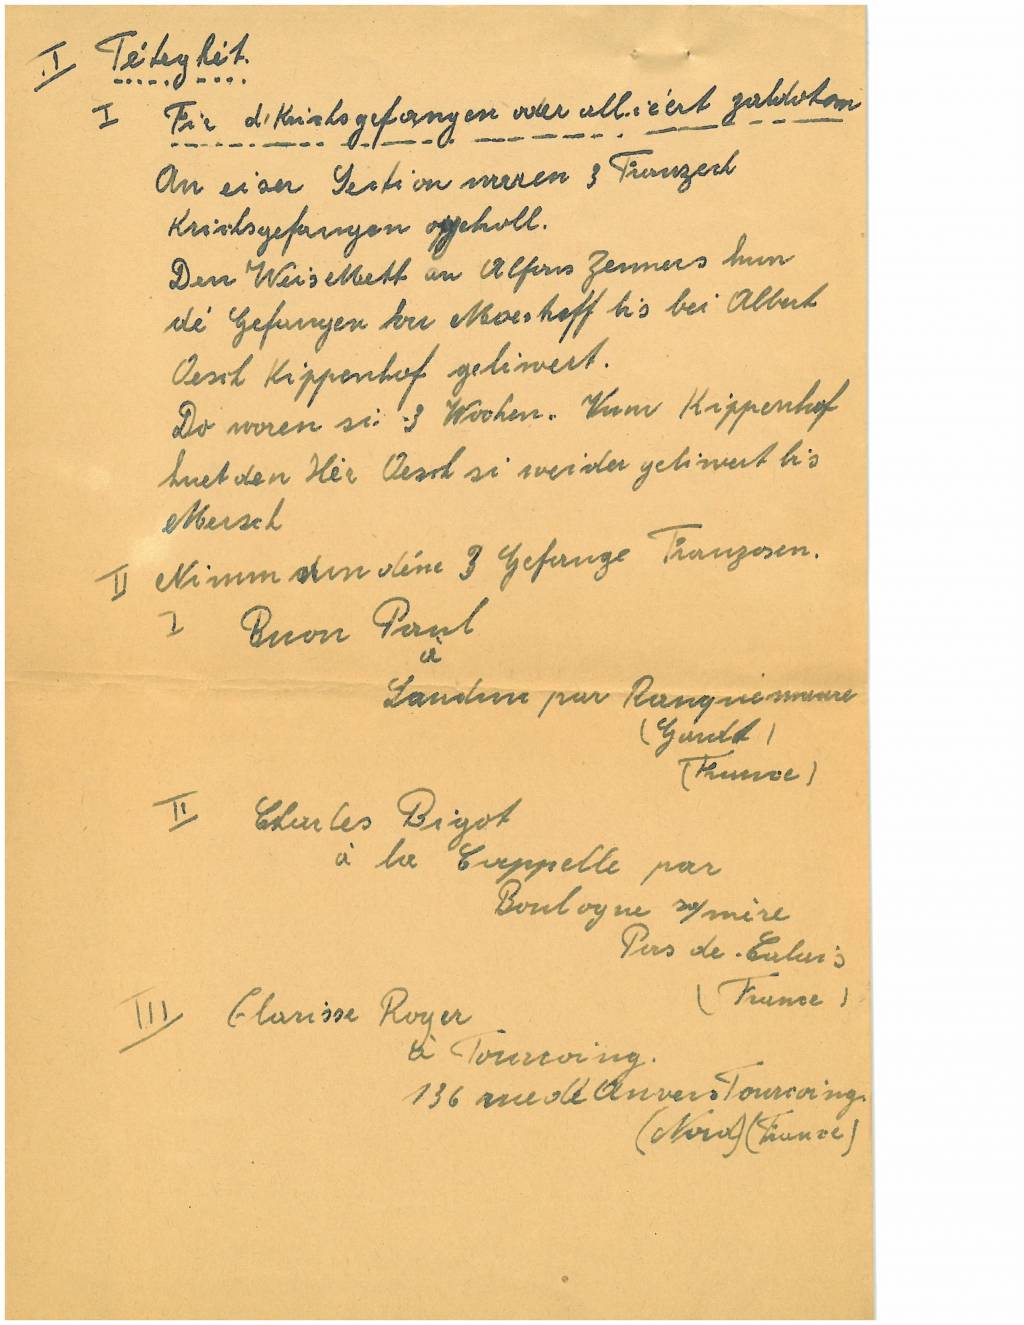 II Téteghét.
I Fir d'Krichsgefangen oder alliéert zaldoten
An eiser Section waren 3 Franzech
Krichsgefangen opgeholl.
Den Weis Mett an Alfons Zenners hun
dé Gefangen hu Moeshoff bis bei Albert
Oesch Kippenhof geliwert.
Do woren si 3 Wochen. Vum Kippenhof
huet den Hér Oesch si weider geliwert bis
Mersch
II Nimm vun déne 3 Gefange Franzosen.
I Buon Paul
à
par
(France)
II Charles Bigot
à la Cappelle par
Boulogne s/mère
Pas de-Calais
(France)
III Clarisse Royer
à Tourcoing.
136 rue de Anvers Tourcoing.
(Nord) (France)